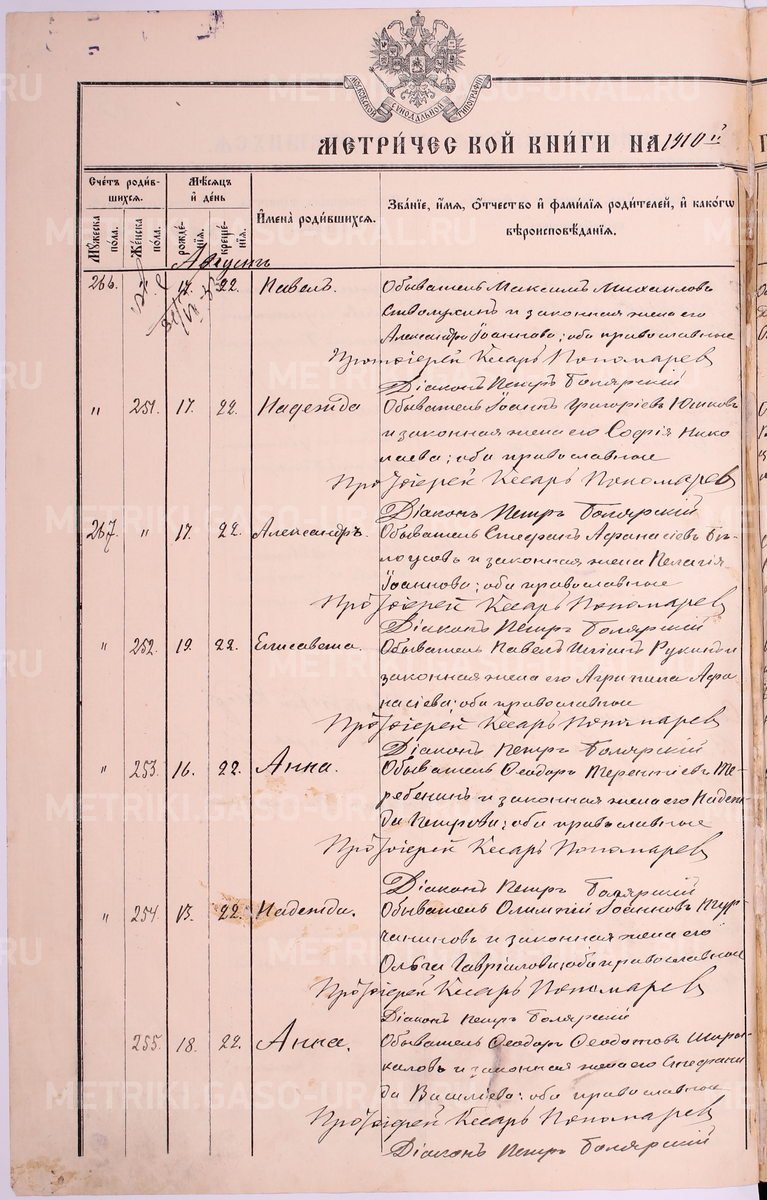 МОСКОВСКОЙ СУНОДАЛЬНОЙ ТИПОГРАФІИ
МЕТРИЧЕСКОЙ КНИГИ НА 1910 г.
Счетъ родившихся.
Мѣсяцъ и день
Имена родившихся.
Званіе, имя, отчество и фамилія родителей, и какогѡ вѣроисповѣданія.
Мужеска пола.
Женска пола.
рожденія.
крещенія.
Августъ
266. 17. 22. Павелъ. Обыватель Максимъ Михаиловъ
и законная жена его
Александра Іоаннова; оба православные
Протоіерей Кесарь Пономарев
Діаконъ Петръ Боярскій
" 251. 17. 22. Надежда Обыватель Іоаннъ Григоріевъ Юшковъ
и законная жена его Софія Нико
лаева; оба православные
Протоіерей Кесарь Пономарев
Діаконъ Петръ Боярскій
267. " 17. 22. Александръ. Обыватель Стефанъ Афанасіевъ Бѣ-
лоусовъ и законная жена Пелагія
Іоаннова; оба православные
Протоіерей Кесарь Пономарев
Діаконъ Петръ Боярскій
" 252. 19. 22. Елисавета. Обыватель Павелъ
законная жена его Агрипина Афа
насіева; оба православные
Протоіерей Кесарь Пономарев
Діаконъ Петръ Боярскій
" 253. 16. 22. Анна. Обыватель Ѳеодоръ Терентіевъ Те-
ребенинъ и законная жена его Надеж-
да Петрова; оба православные
Протоіерей Кесарь Пономарев
Діаконъ Петръ Боярскій
" 254. 13. 22. Надежда. Обыватель Олимпій Іоанновъ Тур-
чаниновъ и законная жена его
Ольга Гавріилова; оба православные
Протоіерей Кесарь Пономарев
Діаконъ Петръ Боярскій
255. 18. 22. Анна. Обыватель Ѳеодоръ Ѳеодотовъ Широ-
каловъ и законная жена его Стефани
да Василіева; оба православные
Протоіерей Кесарь Пономарев
Діаконъ Петръ Боярскій
METRIKI.GASO-URAL.RU